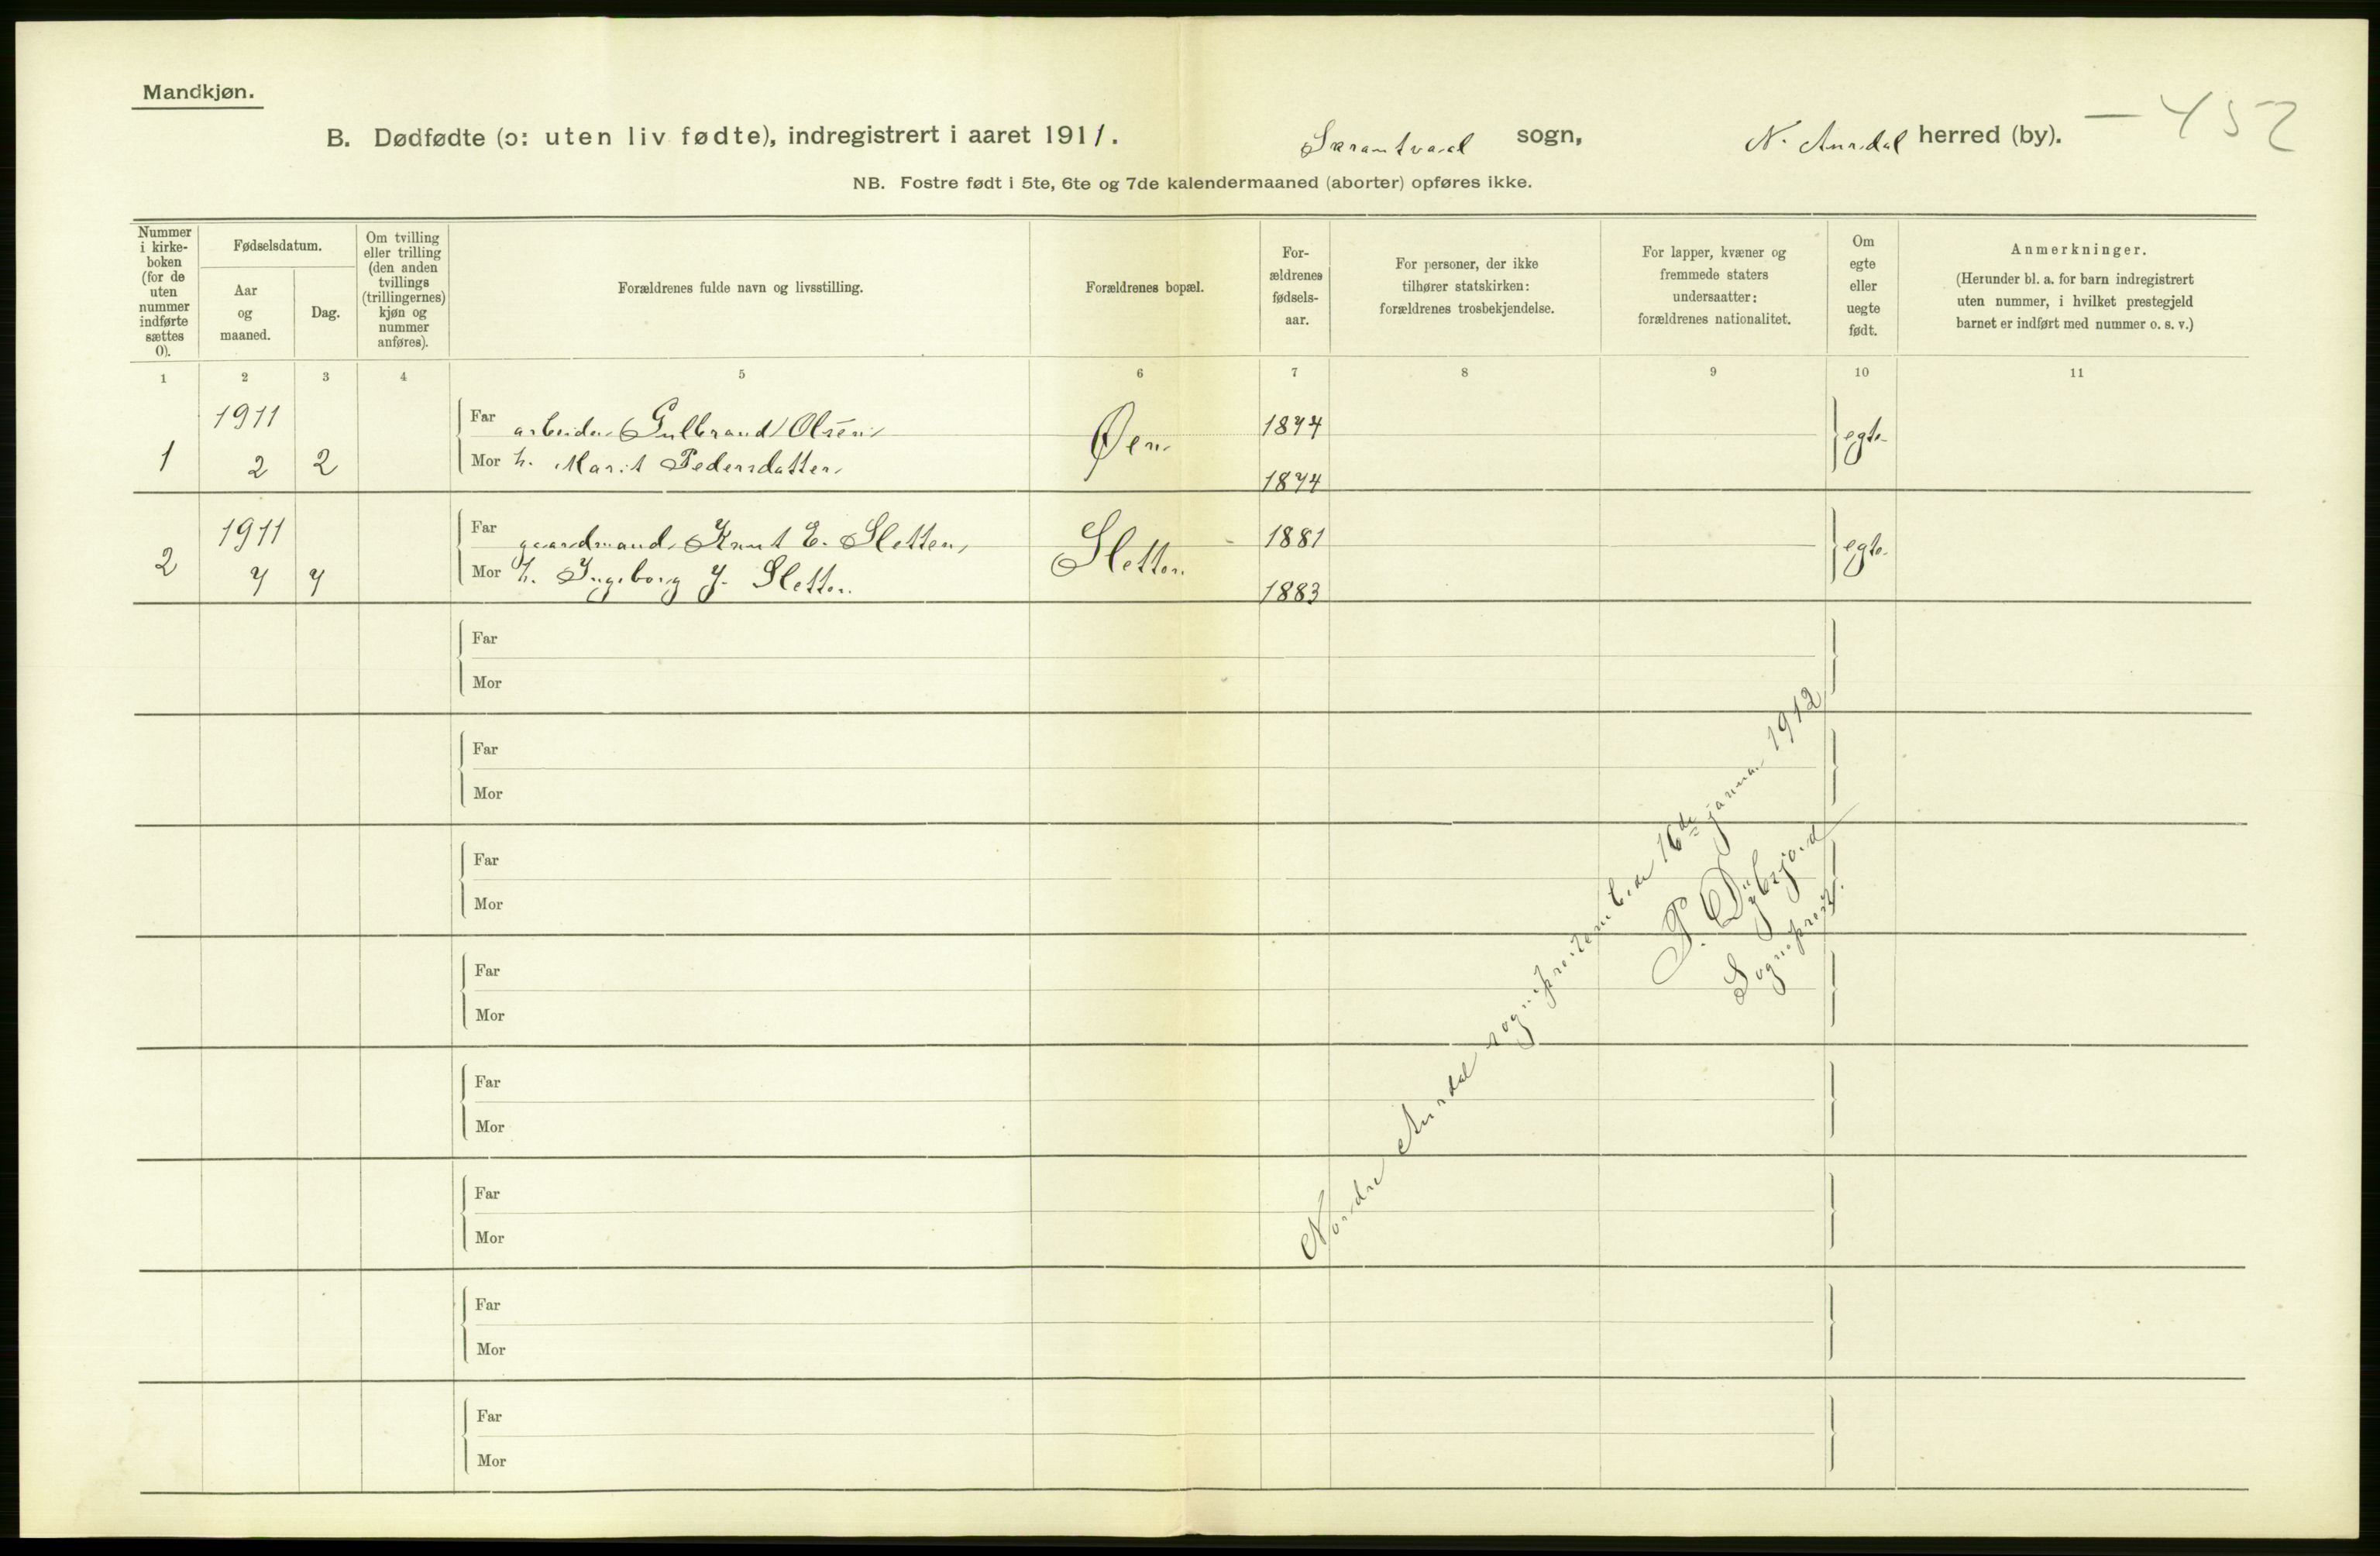 Mandkjøn.
B. Dødfødte (ɔ: uten liv fødte), indregistrert i aaret 1911. Skrautvaal sogn, N. Aurdal herred (by). — 452
NB. Fostre født i 5te, 6te og 7de kalendermaaned (aborter) opføres ikke.
Nummer i kirke- boken (for de uten nummer indførte sættes 0).
Fødselsdatum.
Aar og maaned.
Dag.
Om tvilling eller trilling (den anden tvillings (trillingernes) kjøn og nummer anføres).
Forældrenes fulde navn og livsstilling.
Forældrenes bopæl.
For- ældrenes fødsels- aar.
For personer, der ikke tilhører statskirken: forældrenes trosbekjendelse.
For lapper, kvæner og fremmede staters undersaatter: forældrenes nationalitet.
Om egte eller uegte født.
Anmerkninger.
(Herunder bl. a. for barn indregistrert uten nummer, i hvilket prestegjeld barnet er indført med nummer o. s. v.)
1 2 3 4 5 6 7 8 9 10 11
1911 Far arbeider Gulbrand Olsen Øen 1874 egte
1 2 2 Mor h. Marit Pedersdatter 1874
1911 Far gaardmand Knut E. Sletten Sletten 1881 egte
2 7 7 Mor h. Ingeborg J. Sletten 1883
Far
Mor
Far
Mor
Far
Mor
Far
Mor
Far
Mor
Far
Mor
Far
Mor
Far
Mor
Nordre Aurdal sogneprestembede 16de januar 1912
Sogneprest.